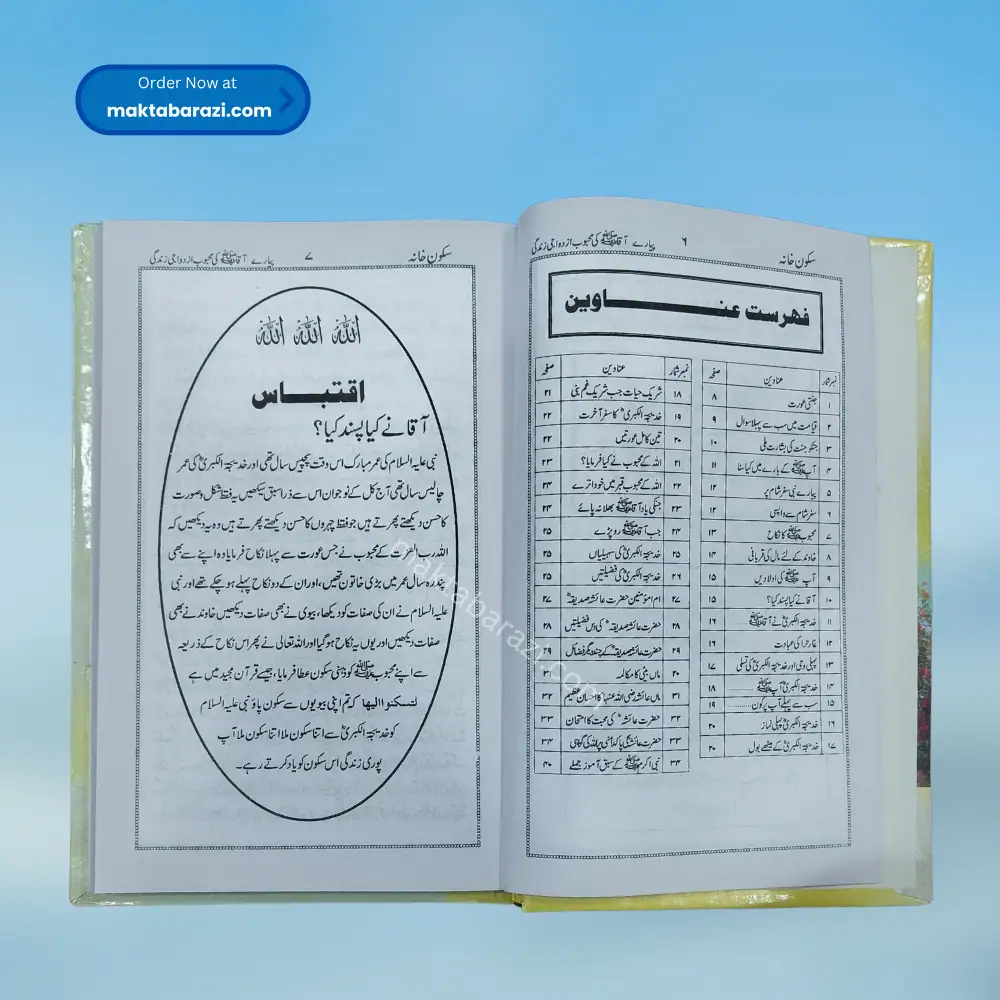 Order Now at
maktabarazi.com
سکون خانہ ۶ پیارے آقاﷺ کی محبوب ازدواجی زندگی
فہرست عناوین
نمبر شمار عناوین صفحہ
۱ جنتی عورت ۸
۲ قیامت میں سب سے پہلا سوال ۹
۳ جنکو جنت کی بشارت ملی ۱۰
۴ آپﷺ کے بارے میں کیا سنا ۱۱
۵ پیارے نبی سفر شام پر ۱۲
۶ سفر شام سے واپسی ۱۲
۷ محبوبﷺ کا نکاح ۱۳
۸ خاوند کے لئے مال کی قربانی ۱۴
۹ آپﷺ کی اولادیں ۱۵
۱۰ آقا نے کیا پسند کیا؟ ۱۵
۱۱ خدیجۃ الکبریؓ نے آقاﷺ ۱۶
۱۲ غار حرا کی عبادت ۱۶
۱۳ پہلی وحی اور خدیجۃ الکبریؓ کی تسلی ۱۷
۱۴ خدیجۃ الکبریؓ آپﷺ ۱۸
۱۵ سب سے پہلے آپ پر کون.......... ۱۹
۱۶ خدیجۃ الکبریؓ پہلی نماز ۲۰
۱۷ خدیجۃ الکبریؓ کے میٹھے بول ۲۰
نمبر شمار عناوین صفحہ
۱۸ شریک حیات جب شریک غم بنی ۲۱
۱۹ خدیجۃ الکبریؓ کا سفر آخرت ۲۲
۲۰ تین کامل عورتیں ۲۲
۲۱ اللہ کے محبوب نے کیا فرمایا؟ ۲۳
۲۲ اللہ کے محبوب قبر میں خود اترے ۲۴
۲۳ جنکی یاد آقاﷺ بھلا نہ پائے ۲۴
۲۴ جب آقاﷺ رو پڑے ۲۵
۲۵ خدیجۃ الکبریؓ کی سہیلیاں ۲۵
۲۶ خدیجۃ الکبریؓ کی فضیلتیں ۲۵
۲۷ ام المؤمنین حضرت عائشہ صدیقہؓ ۲۷
۲۸ حضرت عائشہ صدیقہؓ کی دس فضیلتیں ۲۸
۲۹ حضرت عائشہ صدیقہؓ کے چند دیگر فضائل ۲۹
۳۰ ماں بیٹی کا مکالمہ ۳۰
۳۱ ماں عائشہ رضی اللہ عنہا کا احسان عظیم ۳۲
۳۲ حضرت عائشہؓ کی محبت کا امتحان ۳۳
۳۳ حضرت عائشہؓ کی پاکدامنی پر اللہ کی گواہی ۳۴
۳۴ نبی اکرمﷺ کے سبق آموز جملے ۴۰
سکون خانہ ۷ پیارے آقاﷺ کی محبوب ازدواجی زندگی
اللہ اللہ اللہ
اقتباس
آقا نے کیا پسند کیا؟
نبی علیہ السلام کی عمر مبارک اس وقت پچیس سال تھی اور خدیجۃ الکبریؓ کی عمر
چالیس سال تھی آج کل کے نوجوان اس سے ذرا سبق سیکھیں یہ فقط شکل و صورت
کا حسن دیکھتے پھرتے ہیں جو فقط چہروں کا حسن دیکھتے پھرتے ہیں وہ یہ دیکھیں کہ
اللہ رب العزت کے محبوب نے جس عورت سے پہلا نکاح فرمایا وہ اپنے سے بھی
پندرہ سال عمر میں بڑی خاتون تھیں، اور ان کے دو نکاح پہلے ہو چکے تھے اور نبی
علیہ السلام نے ان کی صفات کو دیکھا، بیوی نے بھی صفات دیکھیں خاوند نے بھی
صفات دیکھیں اور یوں یہ نکاح ہو گیا اور اللہ تعالی نے پھر اس نکاح کے ذریعہ
سے اپنے محبوبﷺ کو ذہنی سکون عطا فرمایا، جیسے قرآن مجید میں ہے
لتسکنوا الیھا کہ تم اپنی بیویوں سے سکون پاؤ نبی علیہ السلام
کو خدیجۃ الکبریؓ سے اتنا سکون ملا اتنا سکون ملا آپ
پوری زندگی اس سکون کو یاد کرتے رہے۔
maktabarazi.com